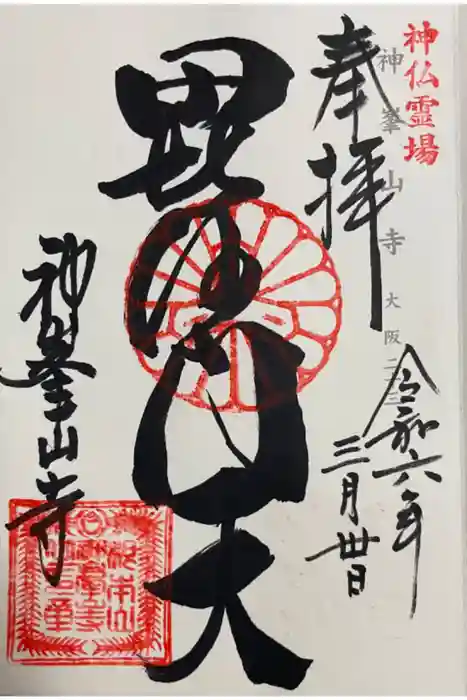 神仏霊場
神峯山寺 大阪二十三
奉拝
令和六年
三月卅日
毘沙門天
神峯山寺